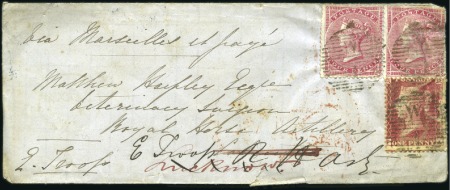 POSTAGE POSTAGE
via Marseilles et payé
Matthew Esqre
Veterinary Surgeon
Royal Horse Artillery
E Troop E Troop R. H. Art
Lucknow
ONE PENNY